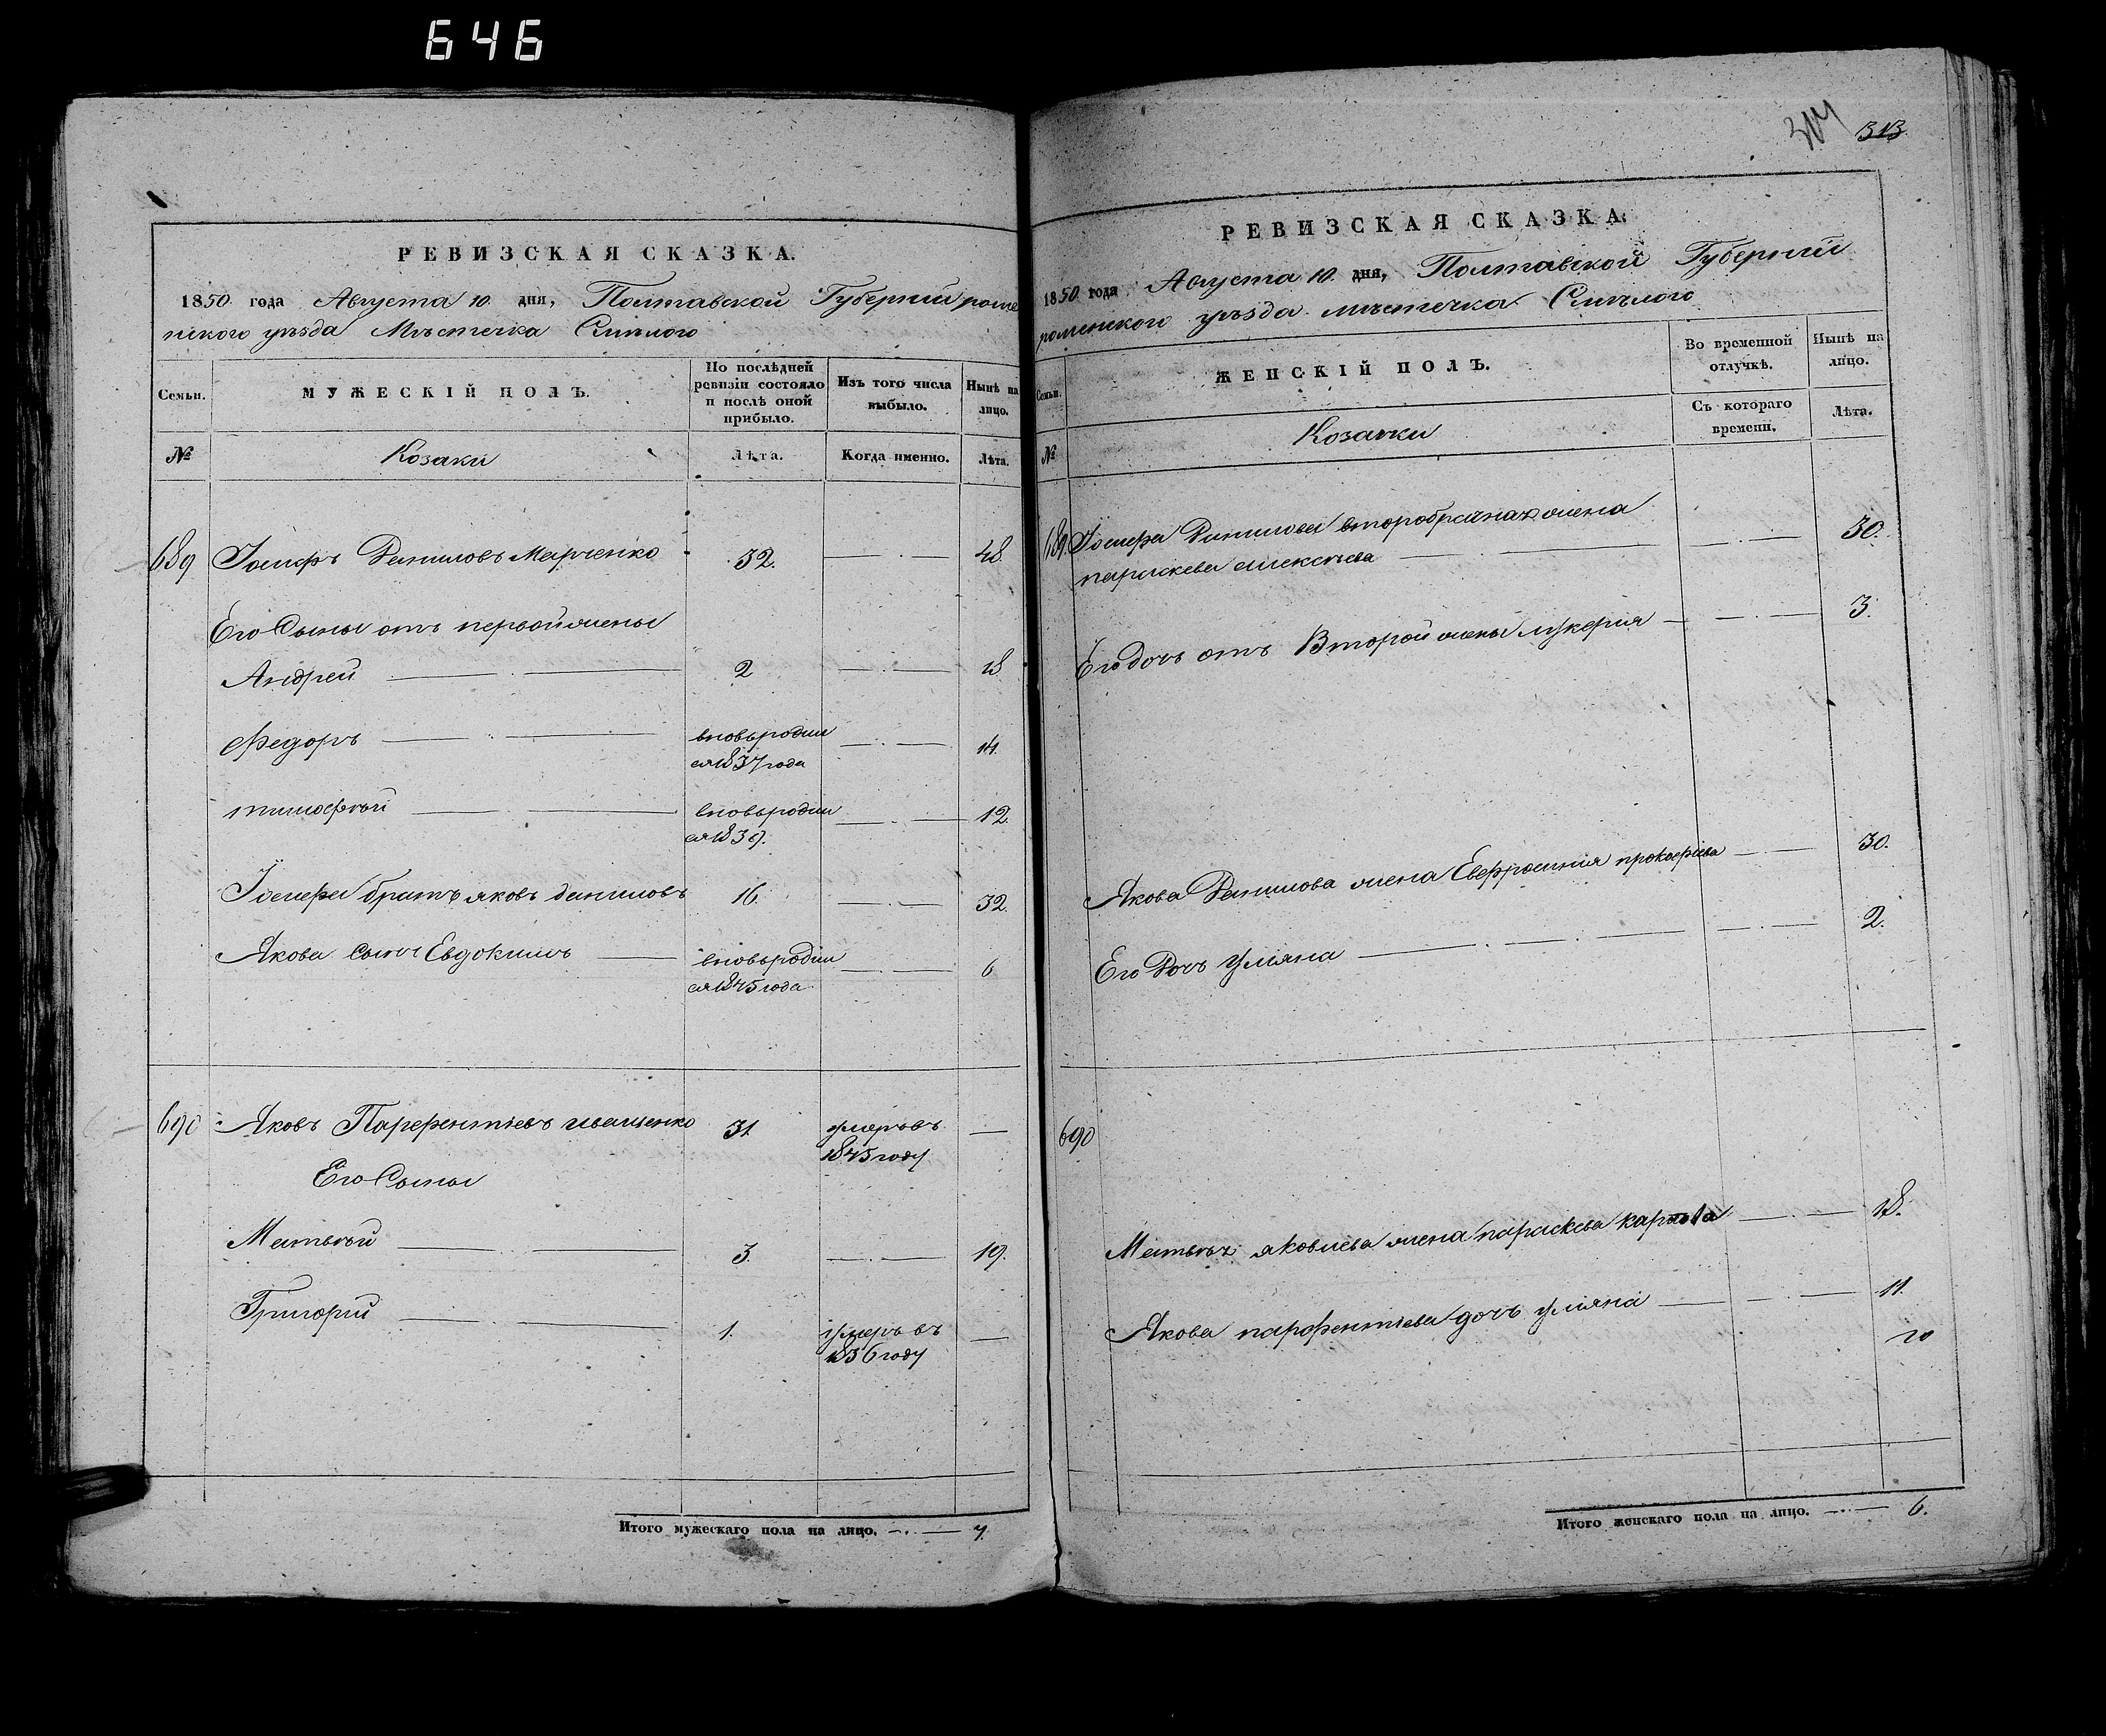 646
РЕВИЗСКАЯ СКАЗКА.
1850 года Августа 10 дня, Полтавской Губернии роме
нского уѣзда Мѣстечка Смѣлого
Семьи.
МУЖЕСКІЙ ПОЛЪ.
По послѣдней ревизіи состояло и послѣ оной прибыло.
Изъ того числа выбыло.
Нынѣ на лицо.
№
Козаки
Лѣта.
Когда именно.
Лѣта.
689 Іосифъ Даниловъ Марченко 32. 48.
Его Сыны отъ первой жены
Андрей 2 18
Федоръ вновьродил 14.
ся 1837 года
тимофѣй вновьродил 12.
ся 1839.
Іосифа братъ яковъ даниловъ 16. 32.
Якова сынъ Евдокимъ вновьродил 6
ся 1845 года
690 Яковъ Парфентіевъ иващенко 31 умеръ въ
1845 году
Его Сыны
Матвѣй 3. 19.
Григорій 1. умеръ въ
1836 году
Итого мужескаго пола на лицо. 7.
314 313
РЕВИЗСКАЯ СКАЗКА.
1850 года Августа 10. дня, Полтавской Губерніи
роменского уѣзда мѣстечка Смѣлого
Семьи.
ЖЕНСКІЙ ПОЛЪ.
Во временной отлучкѣ.
Нынѣ на лицо.
№
Козачки
Съ котораго времени.
Лѣта.
689 Іосифа Данилова второбрачная жена 30.
параскева алексѣева
Его дочь отъ Второй жены лукерия 3.
Якова Данилова жена Евфросиния прокофіева 30.
Его Дочь Уліяна 2.
690
Матвѣя яковлева жена параскева карпова 18.
Якова парфентіева дочь уліяна 11.
Итого женскаго пола на лицо. 6.